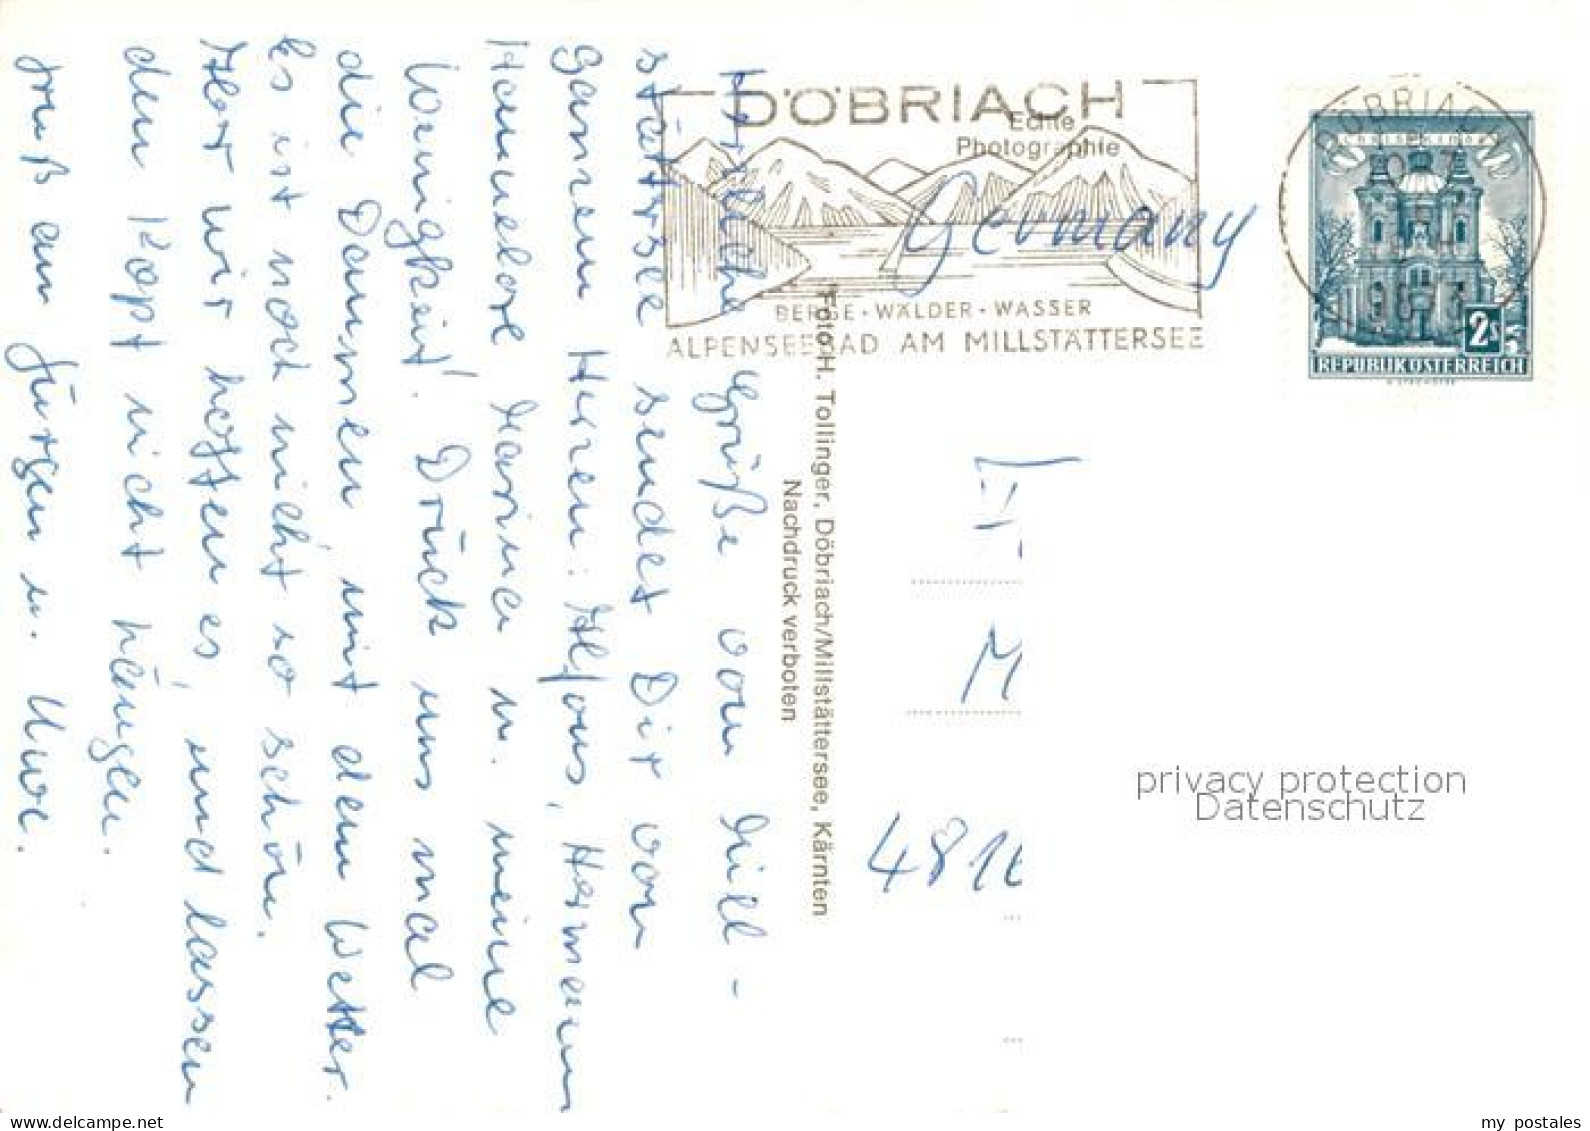 Herzliche Grüße vom Mill-
stättersee sendet Dir von
ganzem Herzen: Alfons, Hermann
Hannelore Marina u. meine
Wenigkeit! Drück uns mal
die Daumen, mit dem Wetter.
Es ist noch nicht so schön.
Aber wir hoffen es, und lassen
den Kopf nicht hängen.
Gruß an Jürgen u. Uwe.
DÖBRIACH
Echte
Photographie
BERGE · WÄLDER · WASSER
ALPENSEEBAD AM MILLSTÄTTERSEE
Germany
Foto H. Tollinger, Döbriach/Millstättersee, Kärnten
Nachdruck verboten
DÖBRIACH
9873
CHRISTKINDL
2S
REPUBLIK ÖSTERREICH
M
481
privacy protection
Datenschutz
my postales